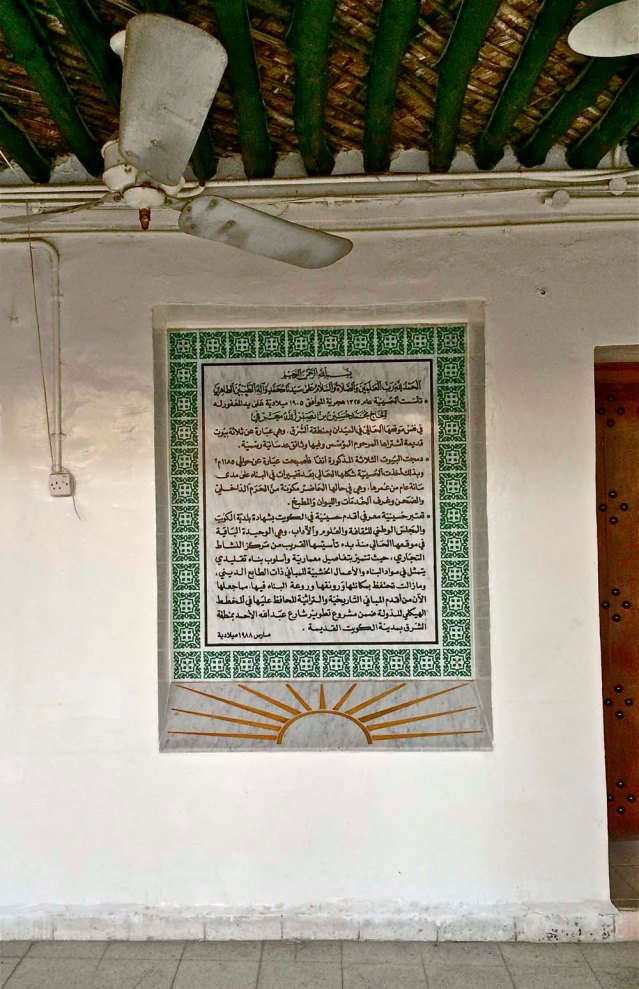 بسم الله الرحمن الرحيم
الحمد لله رب العالمين والصلاة والسلام على سيدنا محمد وآله الطيبين الطاهرين
• تأسست الحسينية عام ١٣٢٥ هجرية الموافق ١٩٠٥ ميلادية على يد المغفور له
الحاج محمد حسين بن نصر الله معرفي
في نفس موقعها الحالي في الميدان بمنطقة الشرق. وهي عبارة عن ثلاثة بيوت
قديمة أشتراها المرحوم المؤسس وفيها وثائق عدسانية رسمية.
• دمجت البيوت الثلاثة المذكورة آنفا فأصبحت عبارة عن حوالي ١١٨٥م٢
وبذلك أخذت الحسينية شكلها الحالي بعد تغييرات في البناء على مدى
مائة عام من عمرها. وهي في حالها الحاضر مكونة من الحرم الداخلي
والصحن وغرف الخدمات والليوان والمطبخ.
• تعتبر حسينية معرفي أقدم حسينية في الكويت بشهادة بلدية الكويت
والمجلس الوطني للثقافة والعلوم والآداب. وهي الوحيدة الباقية
في موقعها الحالي منذ بدء تأسيسها القريب من مركز النشاط
التجاري، حيث تتميز بتفاصيل معمارية وأسلوب بناء تقليدي
يتمثل في مواد البناء والأعمال الخشبية للمباني ذات الطابع الديني.
ومازالت تحتفظ بمكانتها ورونقها وروعة البناء فيها. مما جعلها
الآن من أقدم المباني التاريخية والتراثية للحافظ عليها في المخطط
الهيكلي للدولة ضمن مشروع تطوير شارع عبدالله الأحمد بمنطقة
الشرق بمدينة الكويت القديمة.
مارس ١٩٨٨ ميلادية